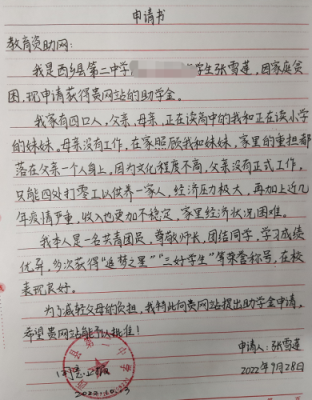 申请书
教育资助网：
我是西乡县第二中学 学生张雪莲，因家庭贫
困，现申请获得贵网站的助学金。
我家有四口人，父亲、母亲、正在读高中的我和正在读小学
的妹妹，母亲没有工作，在家照顾我和妹妹，家里的重担都
落在父亲一个人身上，因为文化程度不高，父亲没有正式工作，
只能四处打零工以供养一家人，经济压力极大，再加上近几
年疫情严重，收入也更加不稳定，家里经济状况困难。
我本人是一名共青团员，尊敬师长，团结同学，学习成绩
优异，多次获得“追梦之星”“三好学生”等荣誉称号，在校
表现良好。
为了减轻父母的负担，我特此向贵网站提出助学金申请，
希望贵网站能予以批准！
申请人：张雪莲
2022年7月28日
2022.10.23